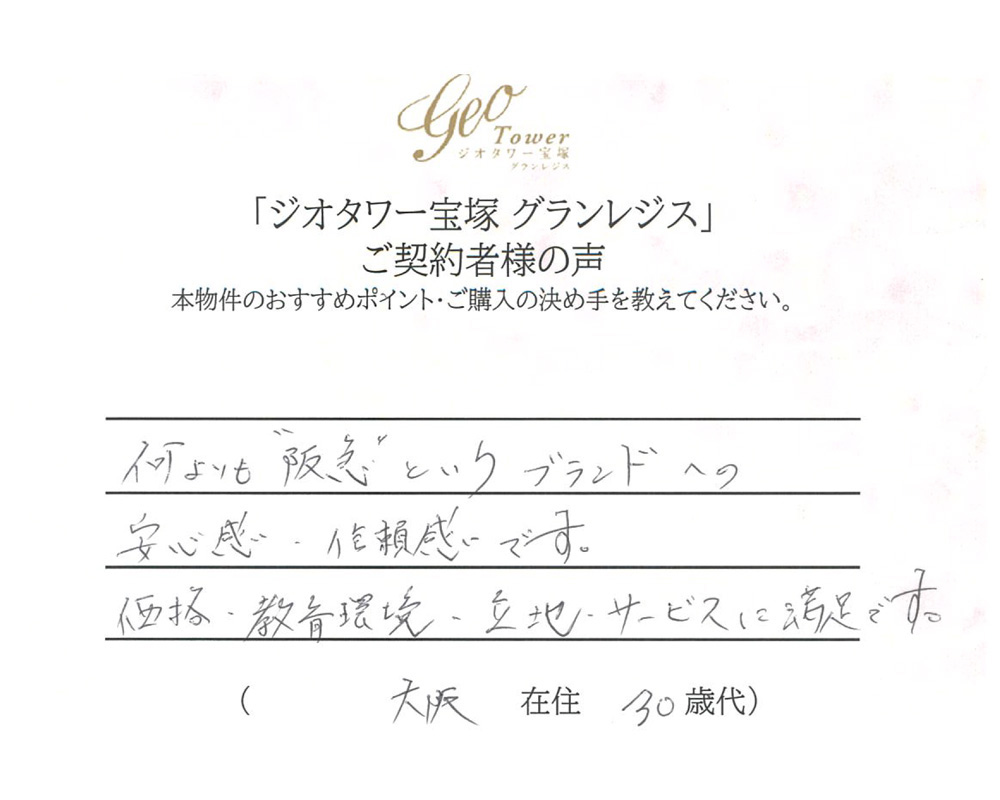 Geo
Tower
ジオタワー宝塚
グランレジス
「ジオタワー宝塚 グランレジス」
ご契約者様の声
本物件のおすすめポイント・ご購入の決め手を教えてください。
何よりも"阪急"という ブランドへの
安心感・信頼感です。
価格・教育環境・立地・サービスに満足です。
( 大阪 在住 30歳代)